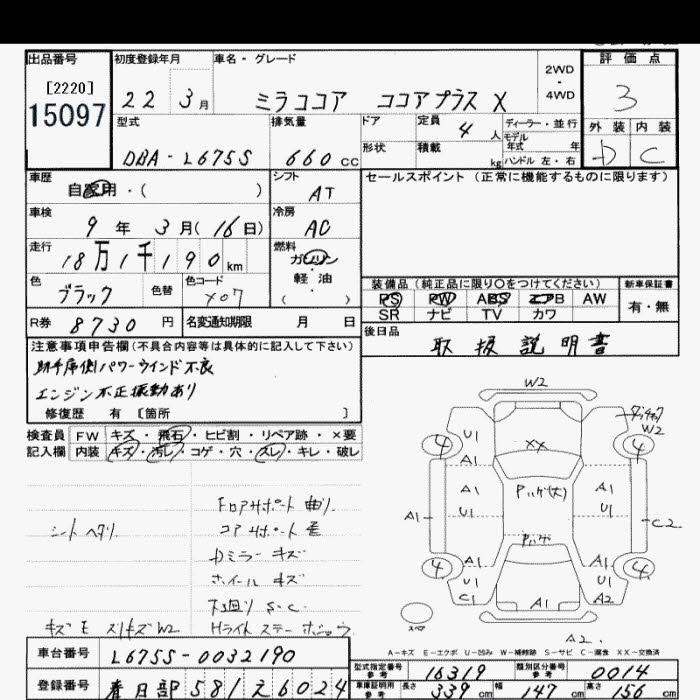 出品番号 初度登録年月 車名・グレード 評価点
[2220] 2WD・4WD
15097 22 3月 ミラココア ココアプラス X 3
型式 排気量 ドア 定員 4人 ディーラー・並行 外装 内装
モデル年式 年
DBA-L675S 660cc 形状 積載 kg ハンドル 左・右 D C
車歴 シフト セールスポイント (正常に機能するものに限ります)
自家用・( ) AT
車検 冷房
9年 3月(16日) AC
走行 燃料
18万1千190km ガソリン・軽油
色 色替 色コード ( ) 装備品 (純正品に限り○をつけてください) 新車保証書
ブラック X07 PS PW ABS エアB AW 有・無
SR ナビ TV カワ
R券 8730円 名変通知期限 月 日 後日品
取扱説明書
注意事項申告欄(不具合内容等は具体的に記入して下さい)
助手席側パワーウインド不良
エンジン不正振動あり
修復歴 有 [箇所 ]
検査員 FW キズ・飛石・ヒビ割・リペア跡・×要
記入欄 内装 キズ・汚レ・コゲ・穴・スレ・キレ・破レ
W2
W2
4 U1 XX 4
A1
A1 Pハゲ(大) A1
A1 U1 U1 C2
Pハゲ
4 A1 A1 4
U1 U1
C1 A1 A2
スペア A2
フロアサポート曲り
シートヘタリ コアサポート歪
Dミラーキズ
ホイールキズ
下廻りS.C
キズモ スリキズW2 Hライトステーホシュウ
A-キズ E-エクボ U-凹み W-補修跡 S-サビ C-腐食 XX-交換済
車台番号 L675S-0032190 型式指定番号 参考 16319 類別区分番号 参考 0014
登録番号 春日部 581 え 6024 車庫証明用 参考 長さ 339cm 幅 147cm 高さ 156cm